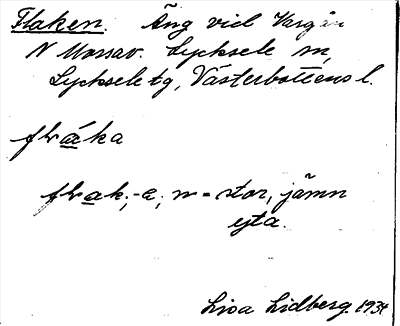 Flaken. Äng vid Vargån
N Mossav. Lycksele sn,
Lycksele tg, Västerbottens l.
flak; -e; n = stor, jämn
yta.
Lisa Lidberg. 1934